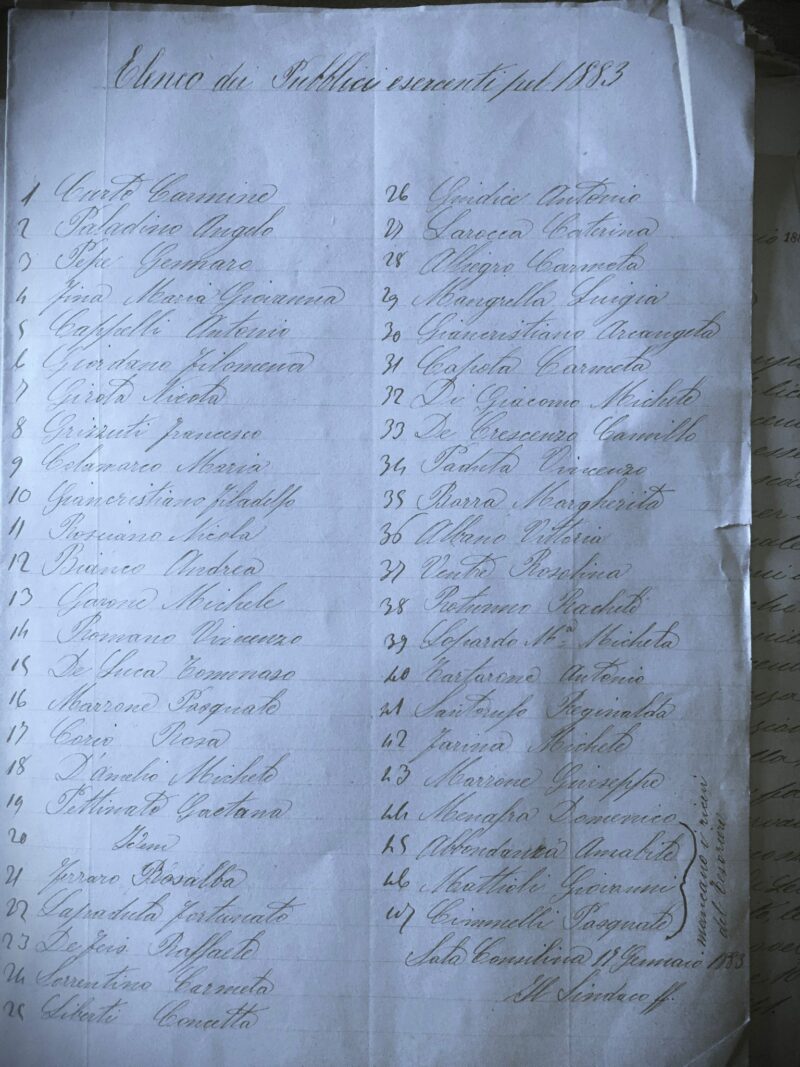 Elenco dei Pubblici esercenti pel 1883
1 Curto Carmine
2 Paladino Angelo
3 Pepe Gennaro
4 Fina Maria Giovanna
5 Cappelli Antonio
6 Giordano Filomena
7 Girota Nicola
8 Grizzuti Francesco
9 Colamarco Maria
10 Giancristiano Filadelfo
11 Rosciano Nicola
12 Bianco Andrea
13 Garone Michele
14 Romano Vincenzo
15 De Luca Tommaso
16 Marrone Pasquale
17 Corio Rosa
18 D'Amelio Michele
19 Pettinato Gaetana
20 Idem
21 Ferraro Rosalba
22 Lapaduta Fortunato
23 Raffaele
24 Sorrentino Carmela
25 Liberti Concetta
26 Giudice Antonio
27 Larocca Caterina
28 Allegro Carmela
29 Mangrella Luigia
30 Giancristiano Arcangela
31 Capota Carmela
32 Di Giacomo Michele
33 De Crescenzo Camillo
34 Paduta Vincenzo
35 Barra Margherita
36 Albano Vittoria
37 Ventre Rosolina
38 Rotunno Rachele
39 Lopardo M.a Michela
40 Tartarone Antonio
41 Santorufo Reginalda
42 Farina Michele
43 Marrone Giuseppe
44 Menafra Domenico
45 Abbondanza Amabile
46 Mattioli Giovanni
47 Cimmelli Pasquale
mancano i ricevi
del Tesoriere
Sala Consilina 17 Gennaio 1883
Il Sindaco ff.